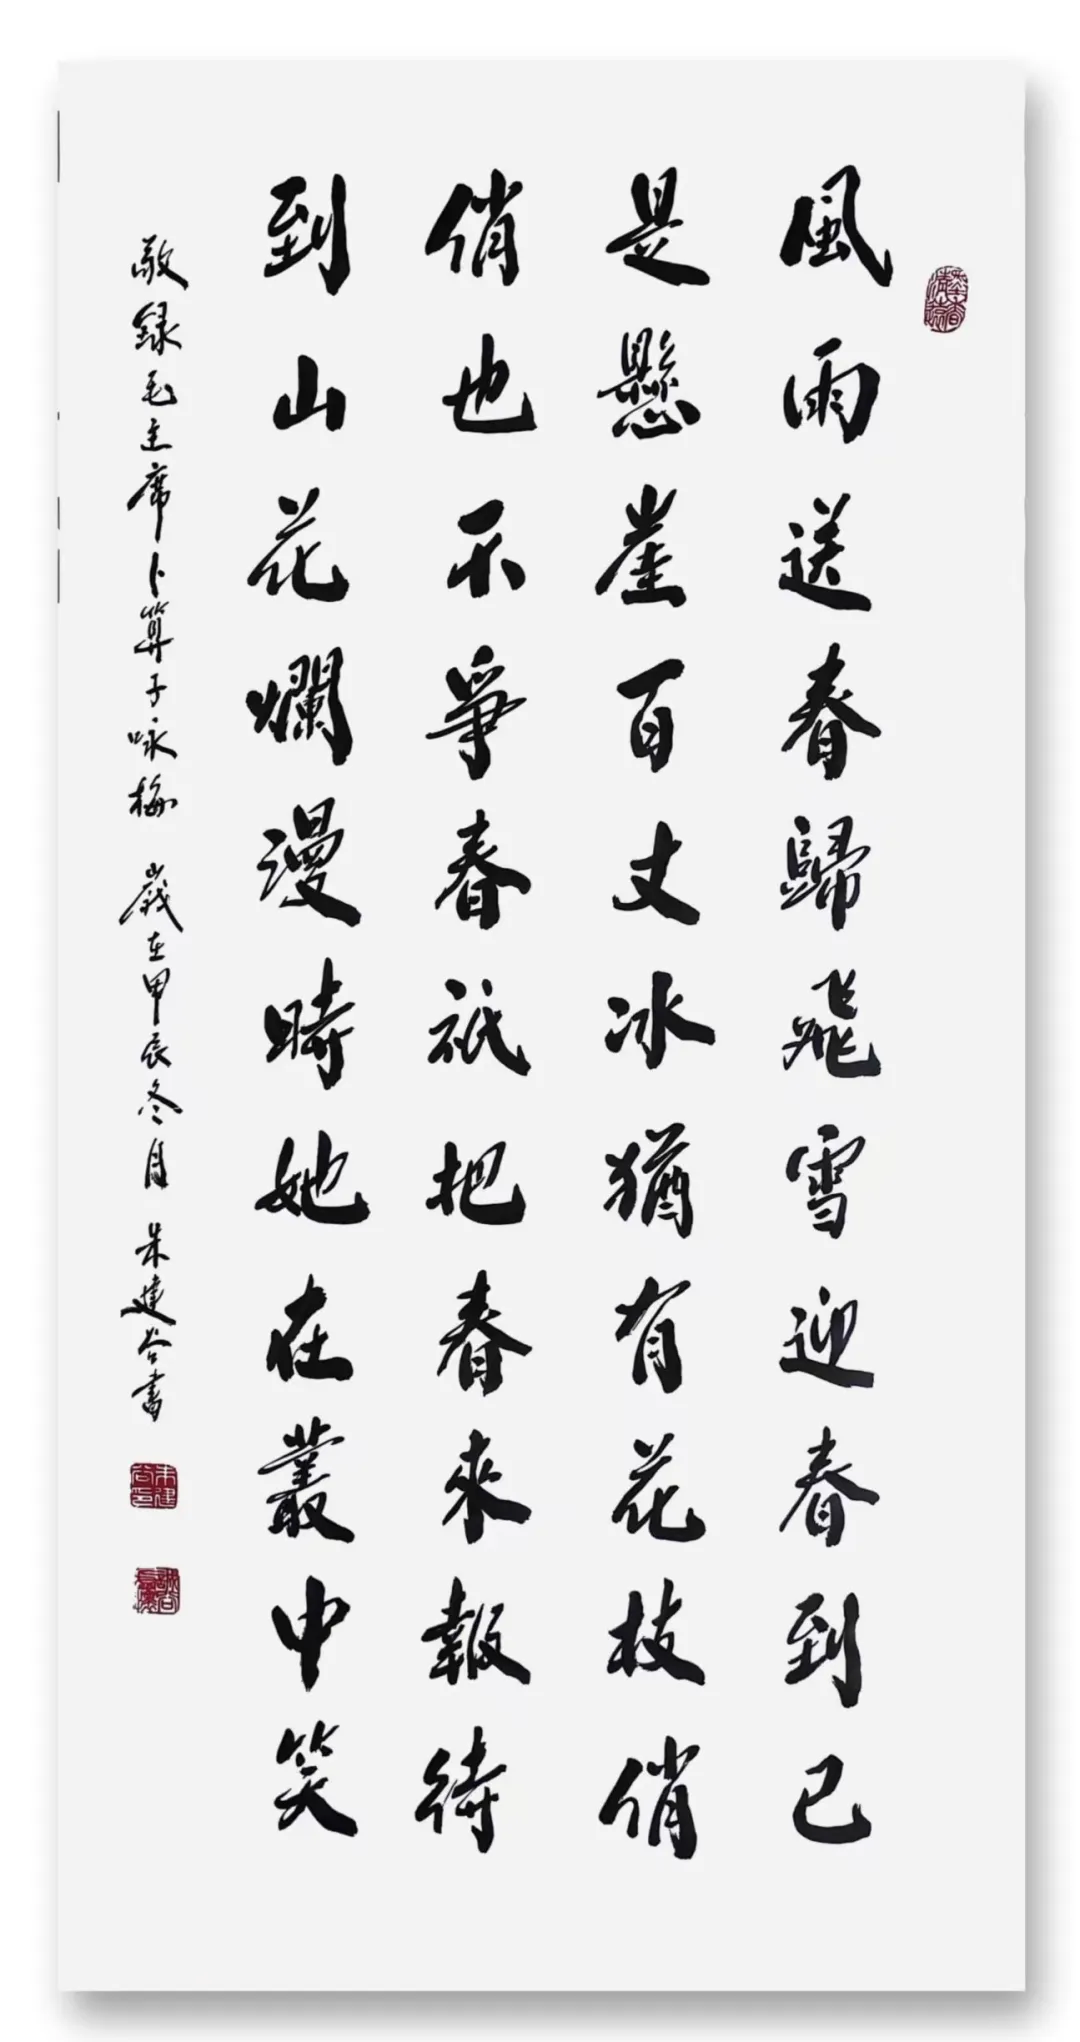 風雨送春歸飛雪迎春到已
是懸崖百丈冰猶有花枝俏
俏也不爭春祇把春來報待
到山花爛漫時她在叢中笑
敬録毛主席卜算子咏梅 歲在甲辰冬月 朱建谷書